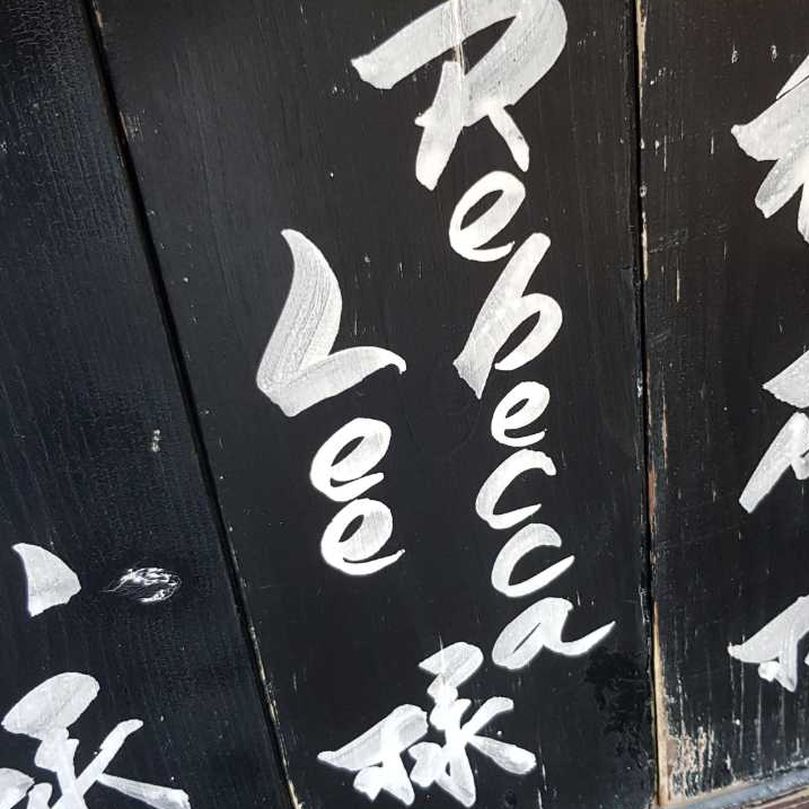 Rebecca
Lee
様
様